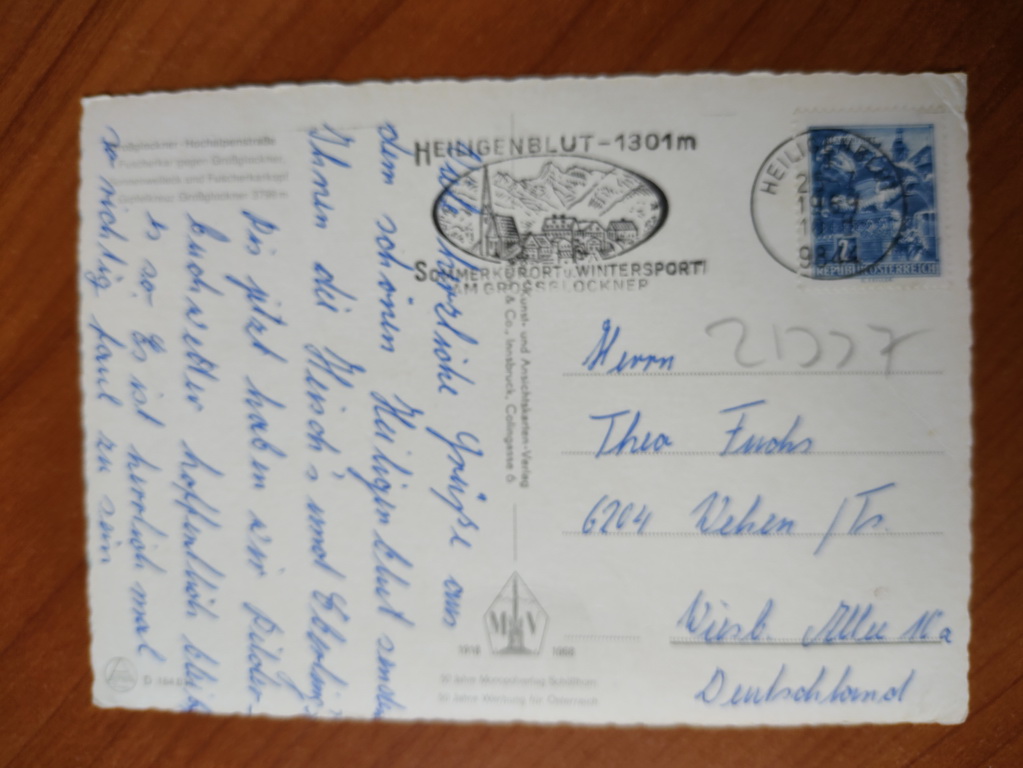 Großglockner-Hochalpenstraße
Großglockner 3798 m
Viele herzliche Grüße aus
dem schönen Heiligenblut senden
Ihnen die Heich's und Ebeling's
Bis jetzt haben wir Bilder-
buchwetter hoffentlich bleibt
es so. Es ist herrlich mal
so richtig faul zu sein
HEILIGENBLUT-1301m
SOMMERKURORT u. WINTERSPORT
AM GROSSGLOCKNER
HEILIGENBLUT
2
REPUBLIK ÖSTERREICH
Kunst- und Ansichtskarten-Verlag
& Co., Innsbruck, Colingasse 6
Herrn
Theo Fuchs
6204 Wehen /Ts.
Wiesb. Allee 10a
Deutschland
M V
1918 1968
50 Jahre Werbung für Österreich